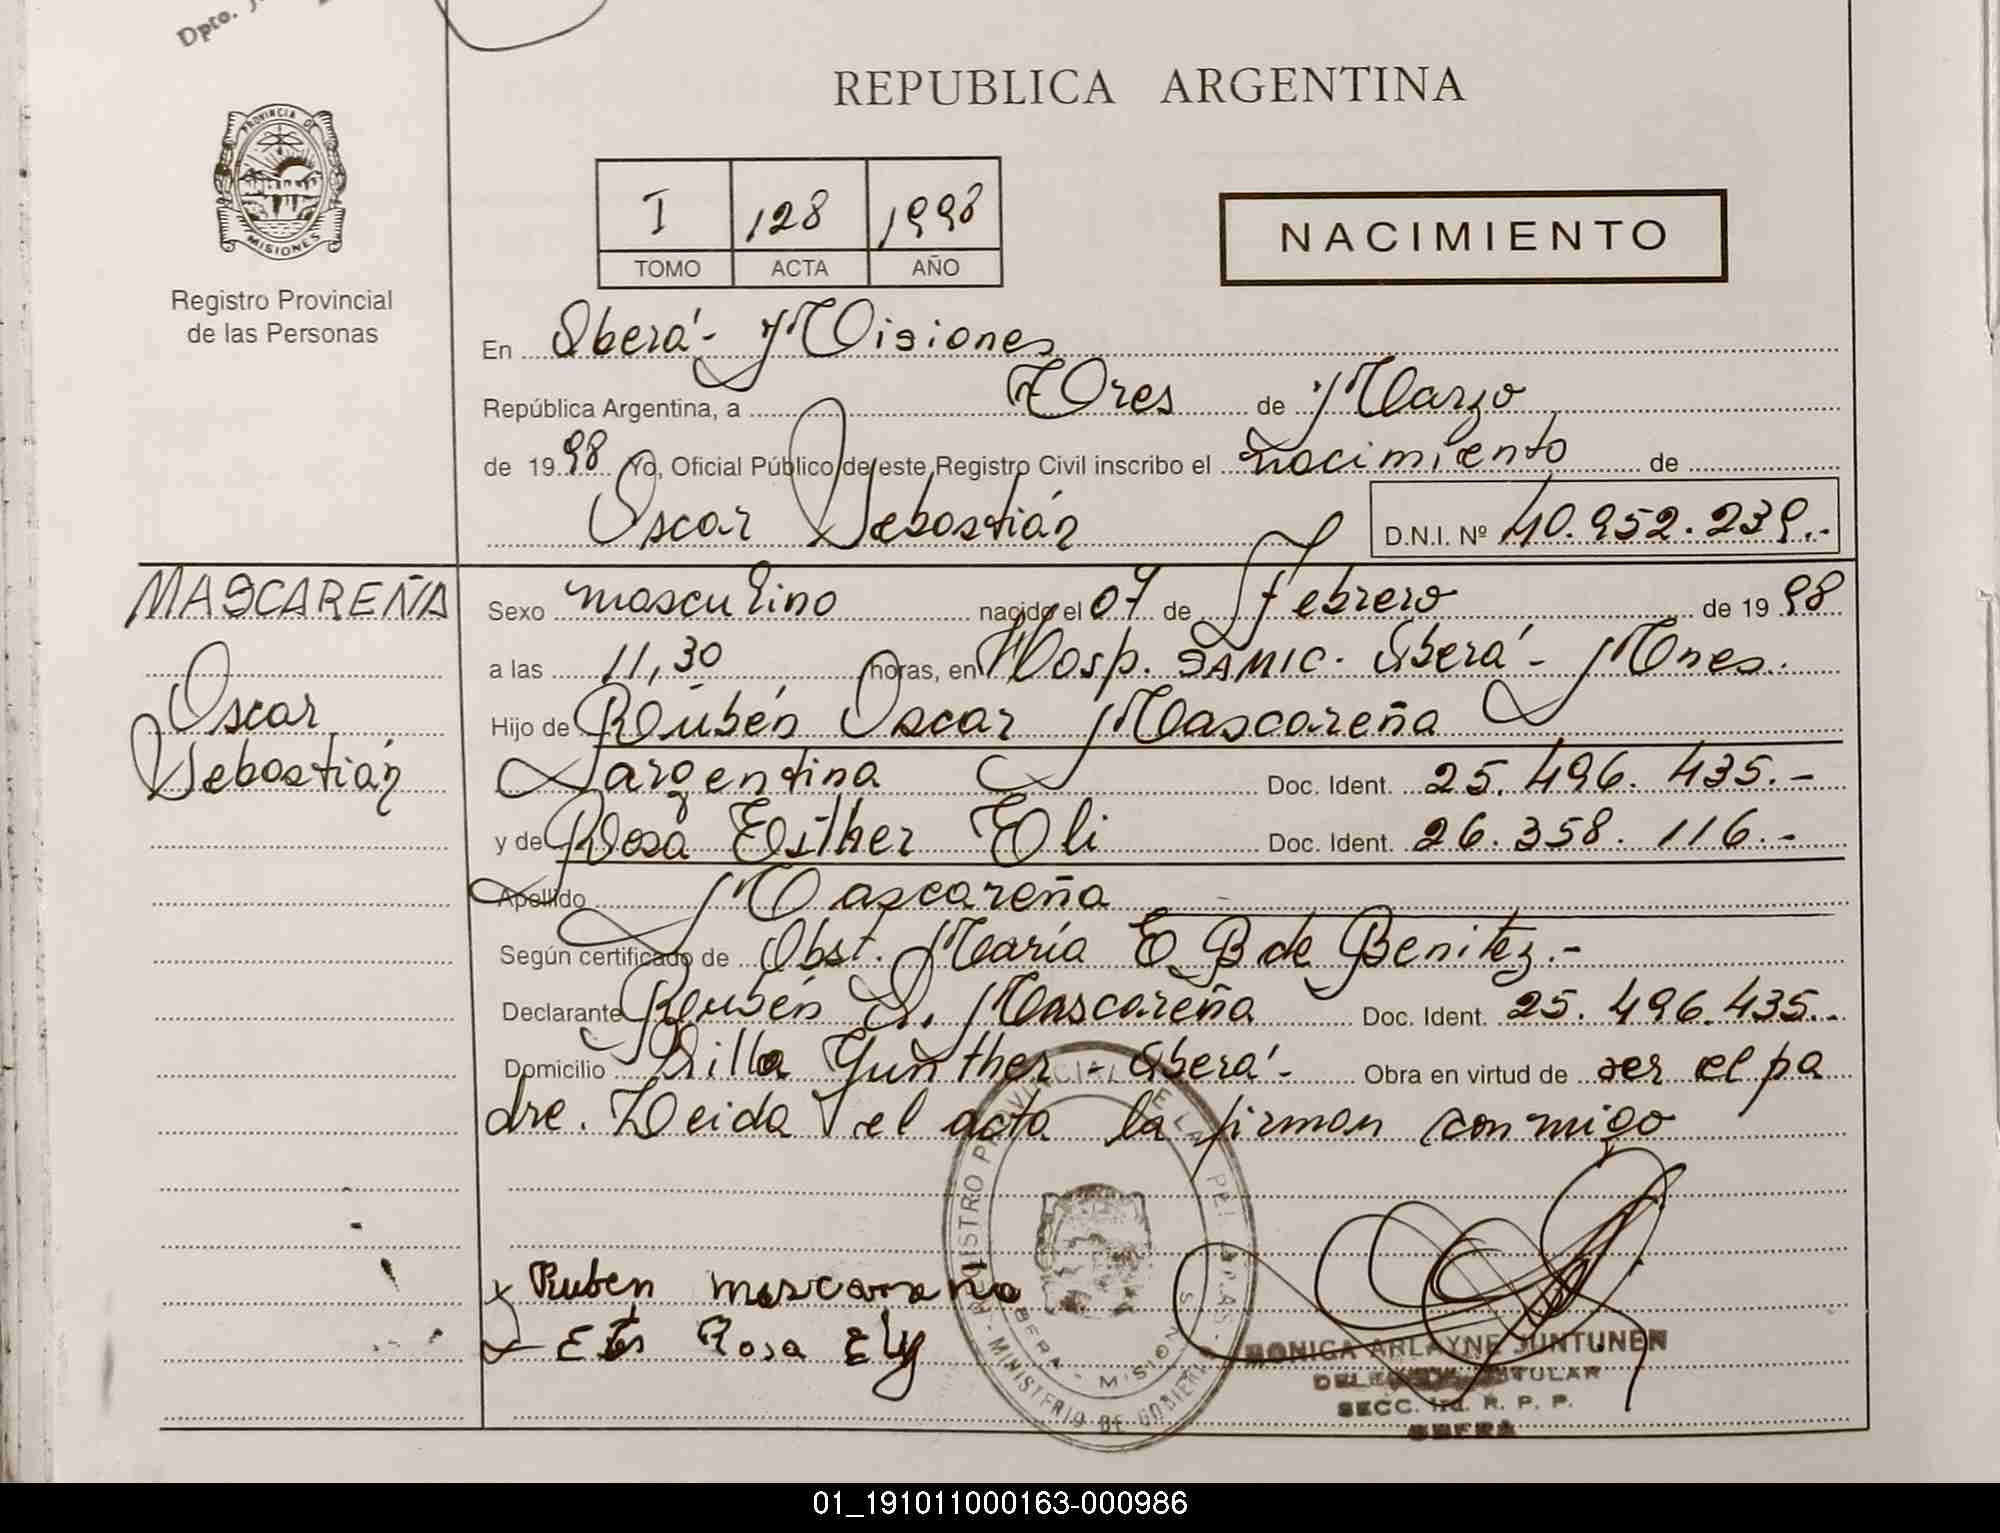 Dpto.
REPUBLICA ARGENTINA
PROVINCIA DE
MISIONES
Registro Provincial
de las Personas
I 128 1998
TOMO ACTA AÑO
NACIMIENTO
En Oberá - Misiones
República Argentina, a Tres de Marzo
de 1998 Yo, Oficial Público de este Registro Civil inscribo el nacimiento de
Oscar Sebastián D.N.I. Nº 40.952.239.-
MASCAREÑA
Oscar
Sebastián
Sexo masculino nacido el 07 de Febrero de 1998
a las 11,30 horas, en Hosp. SAMIC. Oberá - Mnes.
Hijo de Rubén Oscar Mascareña
argentina Doc. Ident. 25.496.435.-
y de Rosa Esther Eli Doc. Ident. 26.358.116.-
Apellido Mascareña
Según certificado de Obst. María E B de Benitez.-
Declarante Rubén O. Mascareña Doc. Ident. 25.496.435.-
Domicilio Villa Gunther - Oberá - Obra en virtud de ser el pa
dre. Leida el acta la firman conmigo
x Ruben mascareña
x Rosa Ely
REGISTRO PROVINCIAL DE LAS PERSONAS
OBERA - MISIONES
MINISTERIO DE GOBIERNO
MONICA ARLAYNE JUNTUNEN
DELEGADA TITULAR
SECC. 1ra. R. P. P.
OBERA
01_191011000163-000986